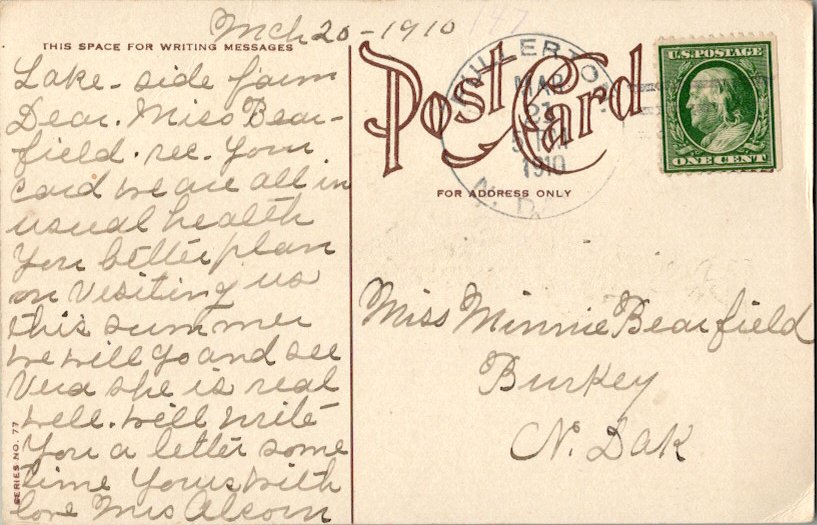 Mch 20-1910
147
THIS SPACE FOR WRITING MESSAGES
Lake-side farm
Dear. Miss Bear-
field. rec. your
card we are all in
usual health
You better plan
on Visiting us
this summer
we will go and see
Vera she is real
well. will write
You a letter some
time Yours with
love Mrs Alcorn
SERIES NO. 77
Post Card
FOR ADDRESS ONLY
FULLERTON
MAR
21
1910
N. D.
U.S. POSTAGE
ONE CENT
Miss Minnie Bearfield
Burkey
N. Dak